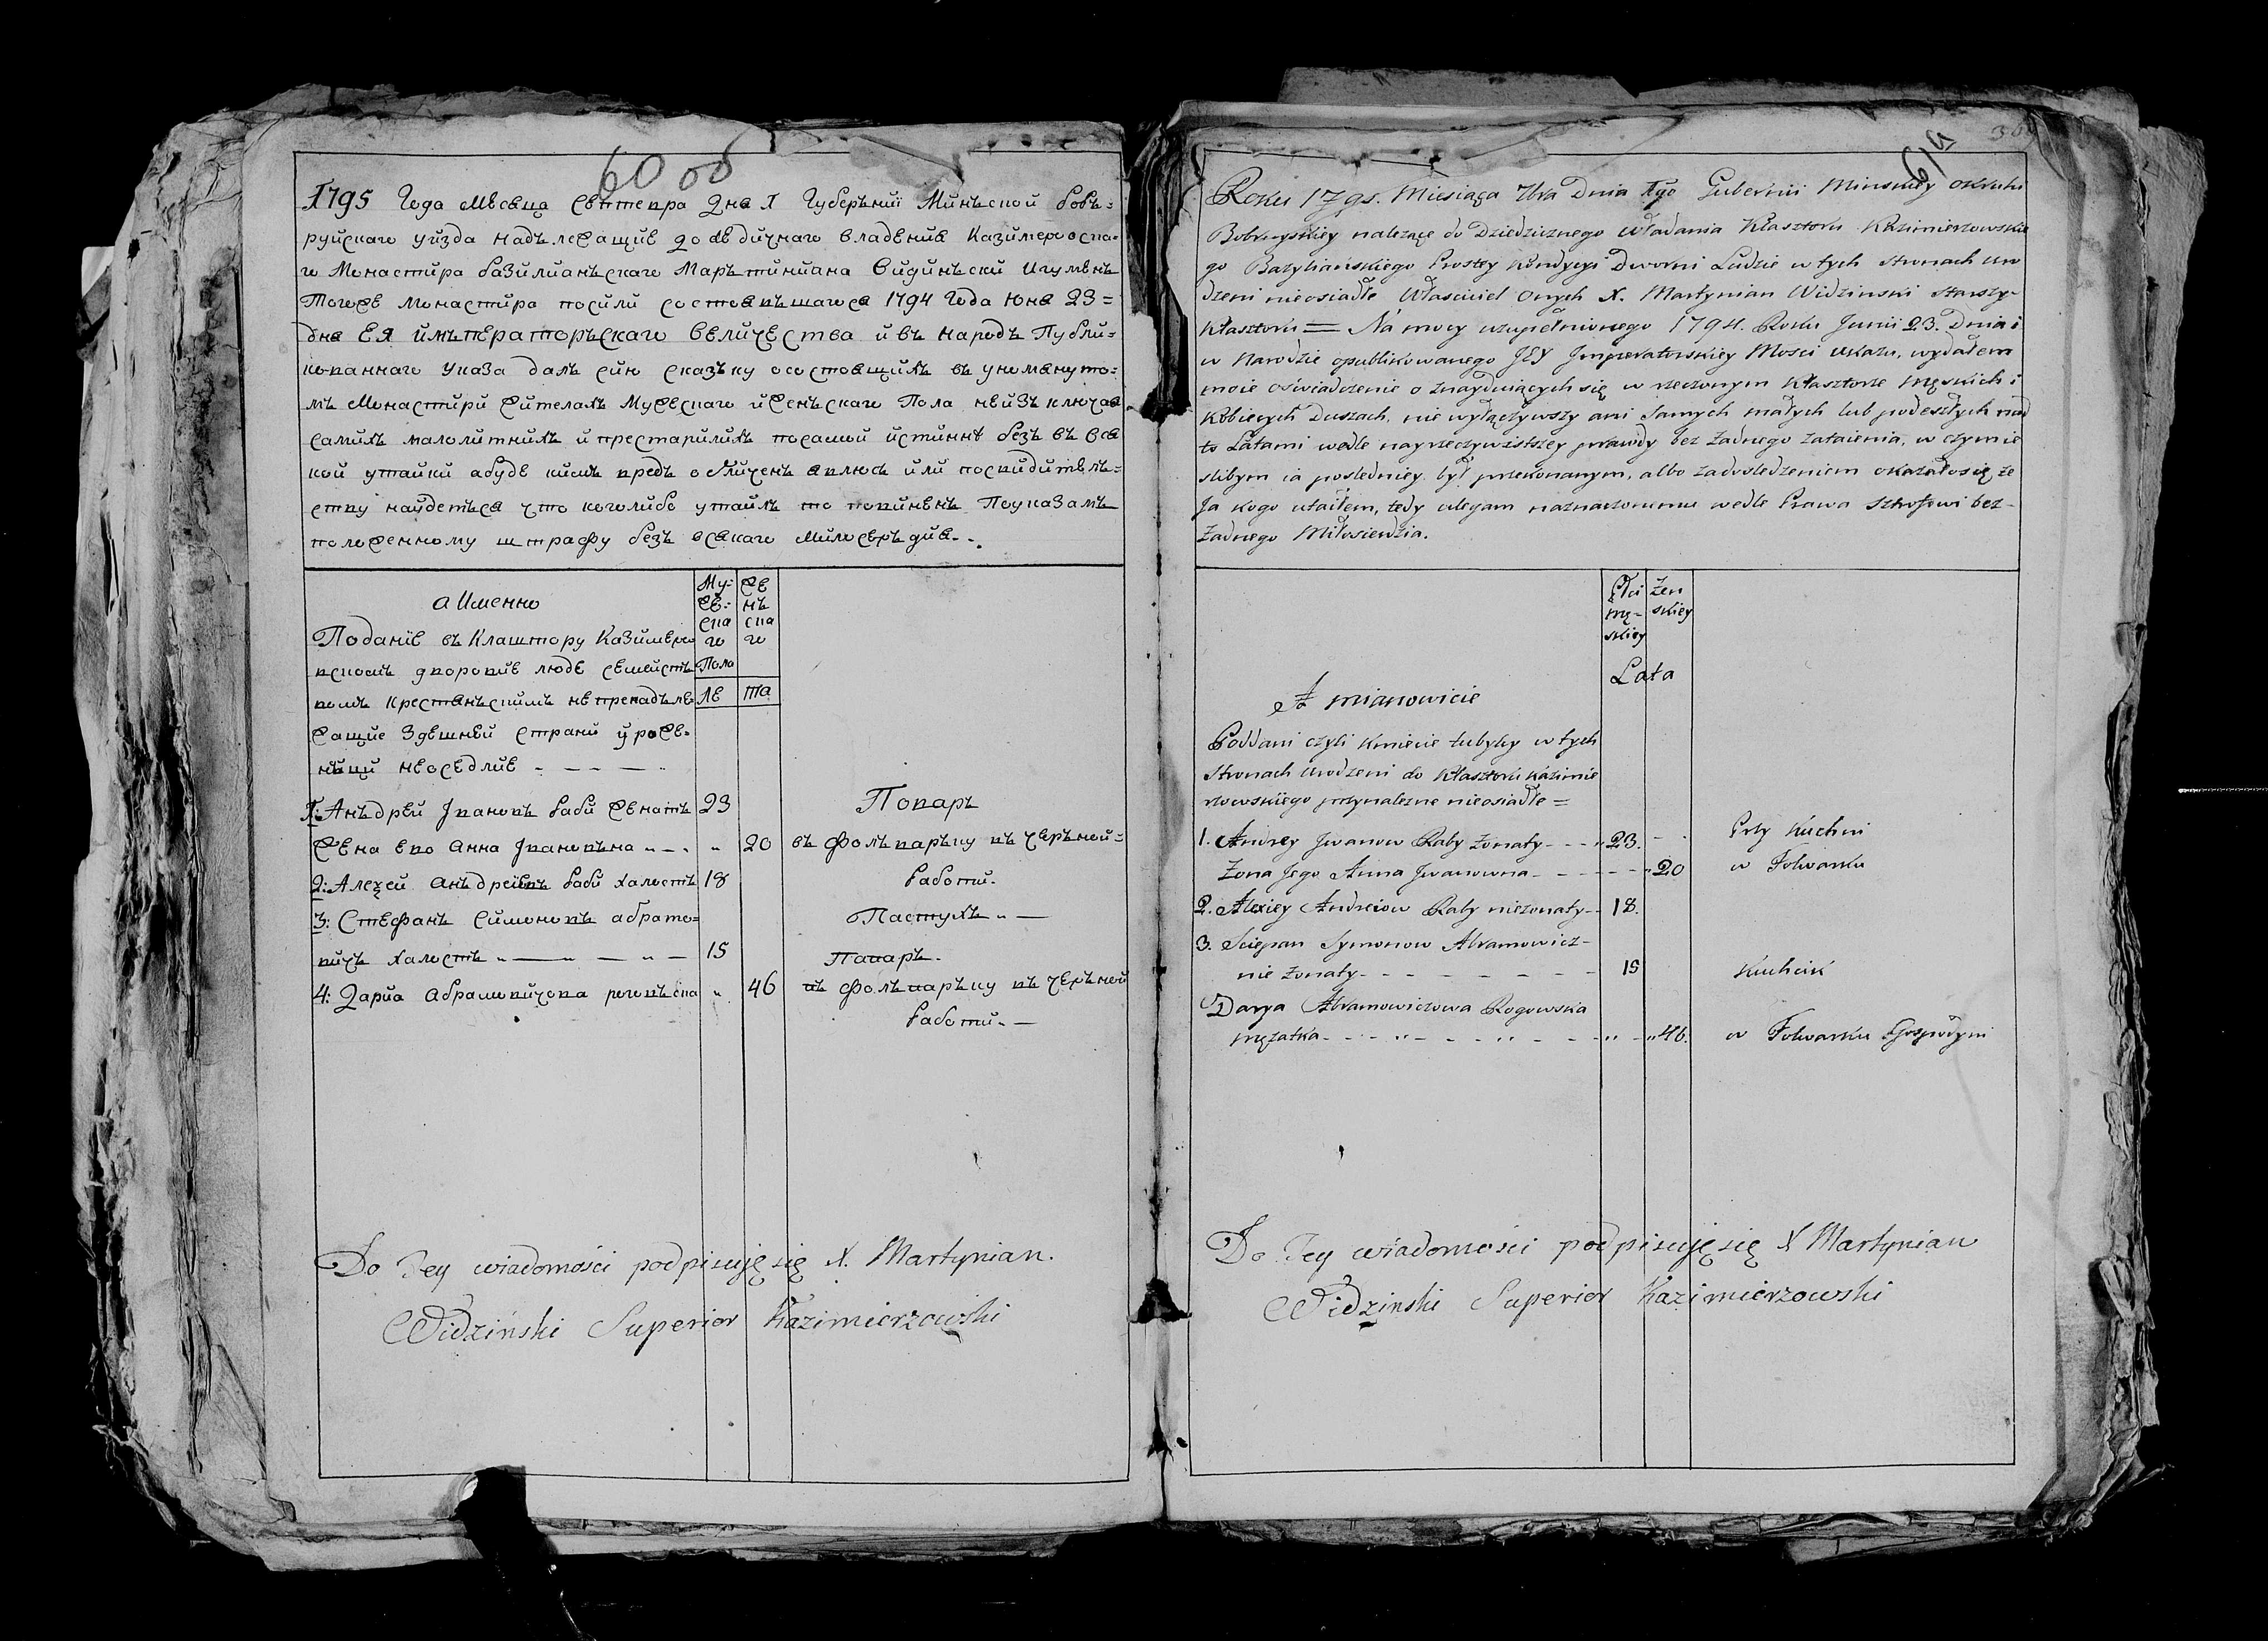 60 об
1795 Года мѣсеца Септепра Дня 1 Губерънии Минъской Бобъ=
руйскаго уйзда надълежащие до ѣдичнаго владения Казимероѡска=
го Монастира базилианъскаго Маръtиниана Видинъски Игуменъ
Тогоже монастира посили состояпъшагося 1794 Года Юня 23=
дня ЕЯ импѣраторъскаго Величества и въ народъ Публи=
копаннаго указа далъ сию сказъку осостоящихъ въ упомянуто=
мъ Монастири жителахъ Мужескаго и женъскаго Пола неизъ ключая
самихъ малолитнихъ и престарилихъ посамой истиннѣ безъ въ вся
кой утайки абуде кимъ предъ обличенъ яплюсь или поспидителъ=
стпу найдеться что коголибо утаилъ то попиненъ Поуказамъ
положенному штрафу безъ всякаго милосеръдия..
а Именно
Му=
же=
ска
го
Пола
же
нъ
ска
го
Ле
та
Подание въ Клаштору Казимеро
пскомъ дпоропие люде семейстъ
помъ крестянъскимъ не пренадъле
жащие Здешней страни уроже=
нъци неоседлие - - - -
1: Анъдрей Іпанопъ баби женатъ 23 Попаръ
Жена епо Анна Іпанопъна " - . " 20 въ фолъпаръку пъ черъной=
работи.
2: Алеѯей анъдреюпъ баби халостъ 18
Пастухъ " —
3: Стефанъ Симонопъ абрамо=
пичъ халостъ " — " — " — 15 Папаръ.
4: Дарйа абрамопичопа рогопъска " 46 пъ фолъпаръку пъ черъной
работи. —
Do Tey wiadomości podpisuję się X. Martynian.
Widziński Superior Kazimierzowski
61 а
36
Roku 1795. Miesiąca 7bra Dnia 1go Gubernii Minskiey okruhi
Bobruyskiey nalezące do Dziedzicznego władania Klasztoru Kazimierzowskie
go Bazyliańskiego Prostey kondycyi Dworni Ludzie w tych stronach uro
dzeni nieosiadłe Własciciel onych X. Martynian Widzinski starszy
Klasztoru = Na mocy uzupełnionego 1794. Roku Junii 23. Dnia i
w narodzie opublikowanego JEY Jmperatorskiey Mosci ukazu, wydałem
moie oswiadczenie o znayduiących się w rzeczonym Klasztorze męskich i
kobiecych duszach, nie wyłączywszy ani samych małych lub podeszłych nad
to Latami wedle nayrzeczywistszey prawdy bez żadnego zataienia, w czymie
slibym ia posledniey był przekonanym, albo zadosledzeniem okazałosię że
Ja kogo utaiłem, tedy ulegam naznaczonemu wedle Prawa Sztrofowi bez=
żadnego Miłosierdzia.
Płci
mę=
skiey
żen
skiey
Lata
A mianowicie
Poddani czyli kmiecie tubylcy w tych
stronach urodzeni do Klasztoru Kazimie
rzowskiego przynalezne nieosiadłe =
1. Andrey Jwanow Baby żonaty - - - " 23. - . Przy Kuchni
Żona Jego Anna Jwanowna - - - - - " 20 w Folwarku
2. Alexiey Andreiow Baby nieżonaty - - 18.
3. Sciepan Symonow Abramowicz -
nie żonaty - - - - - - - - 15 Kuchcik
Darya Abramowiczowa Rogowska
mężatka - - - " - - - " - - " - " 46. w Folwarku Gospodyni
Do Tey wiadomości podpisuję się X Martynian
Widzinski Superior Kazimierzowski